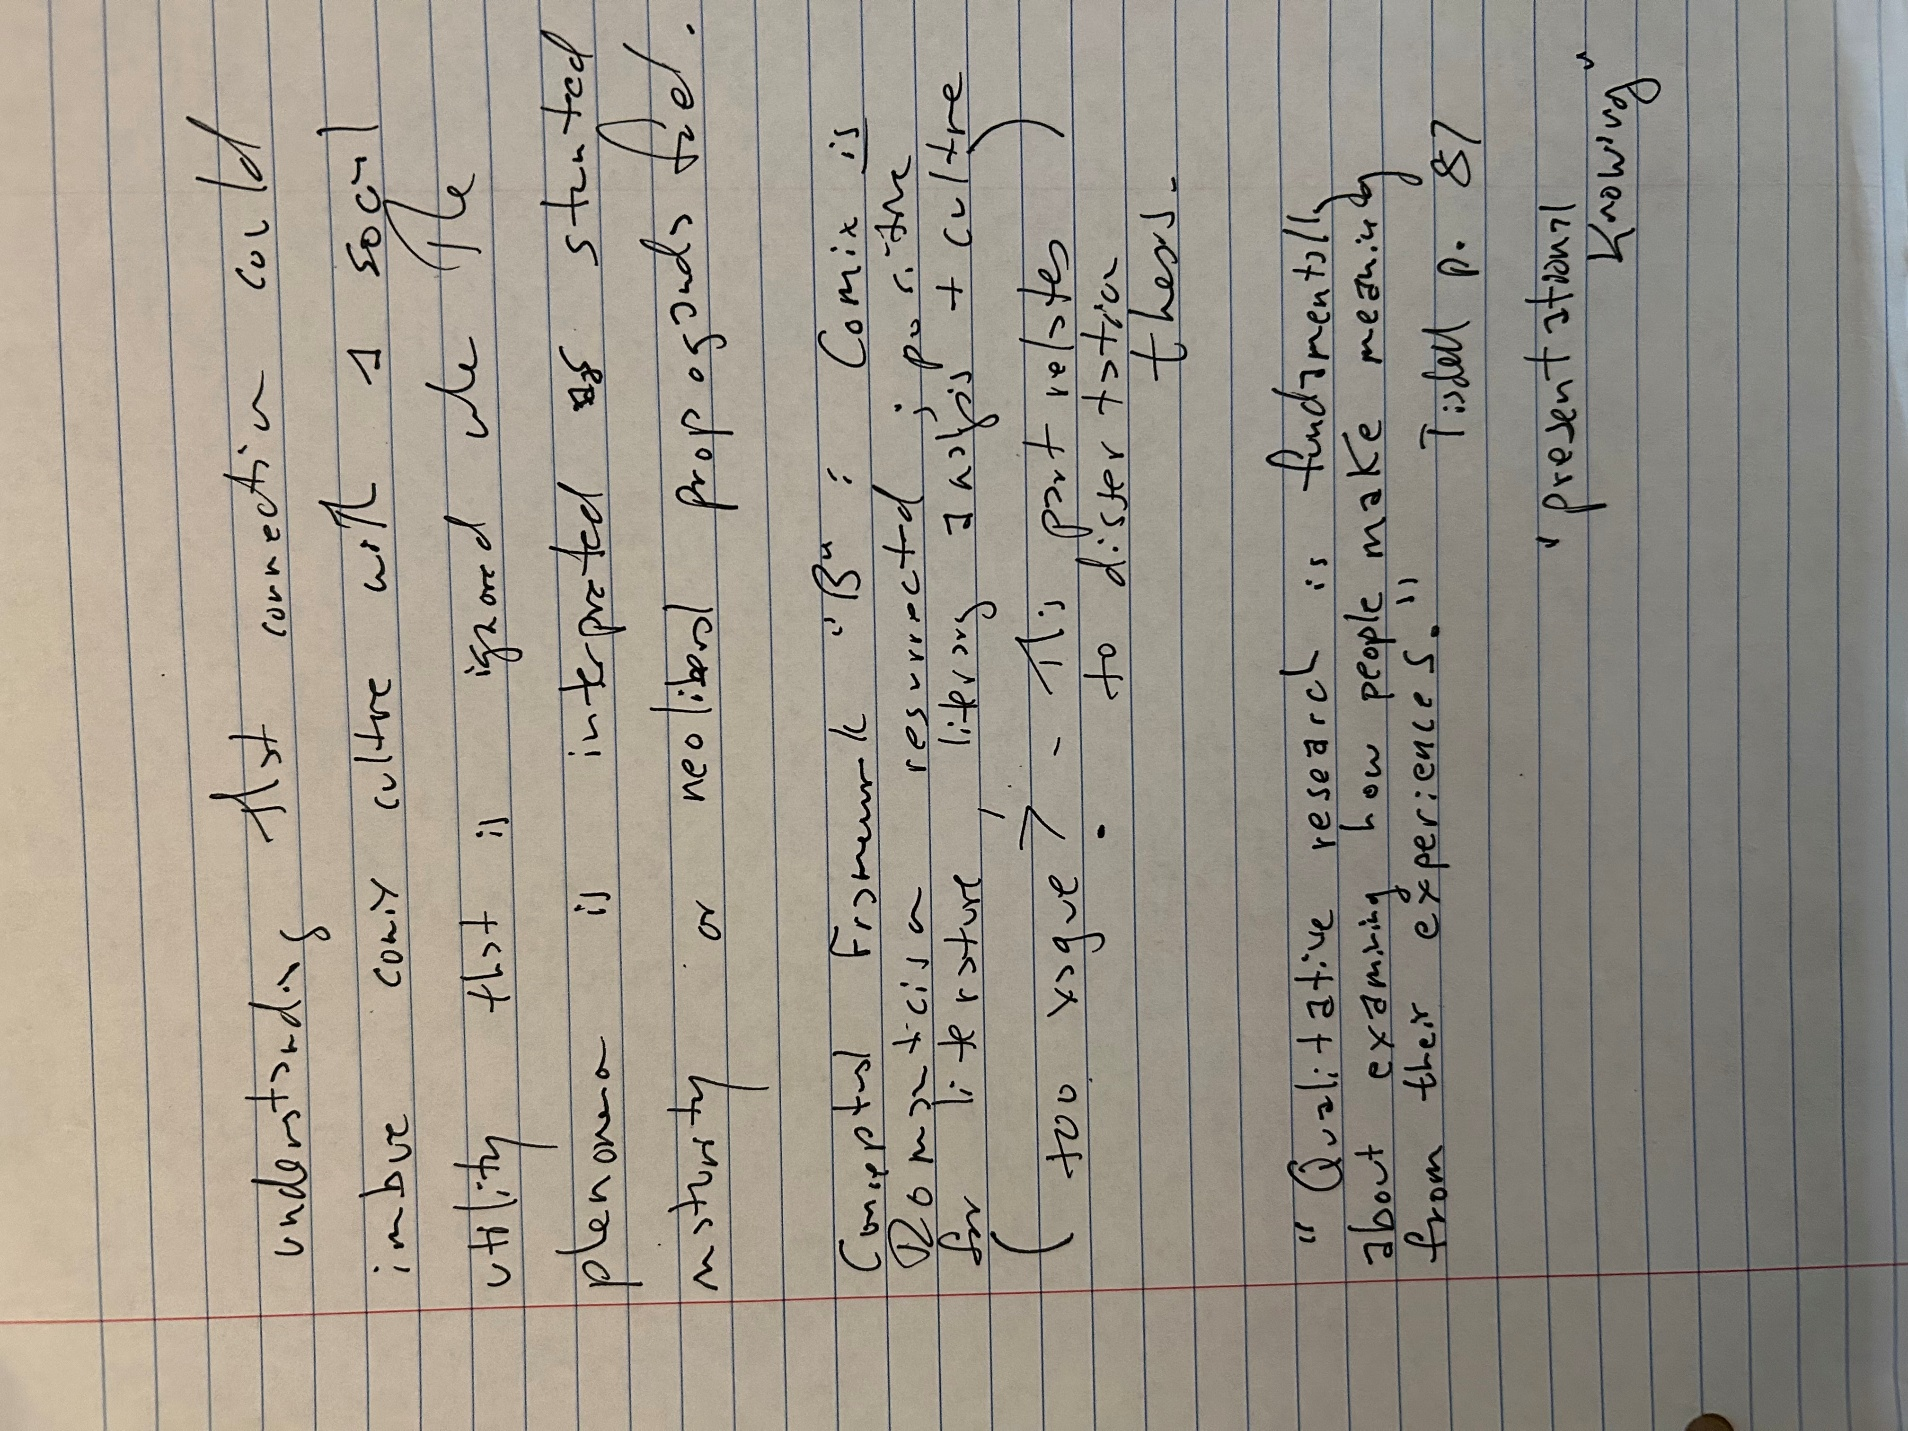 understanding that connection could
imbue comix culture with a social
utility that is ignored when the
phenomena is interpreted as stunted
maturity or neoliberal propoganda fuel.
Conceptual Framework "B" : Comix is
Romanticism resurrected ; positive
for literature, literary analysis + culture
( too vague? - This part relates )
to dissertation
thesis.
"Qualitative research is fundamentally
about examining how people make meaning
from their experiences." Tisdell p. 87
"presentational
Knowing"